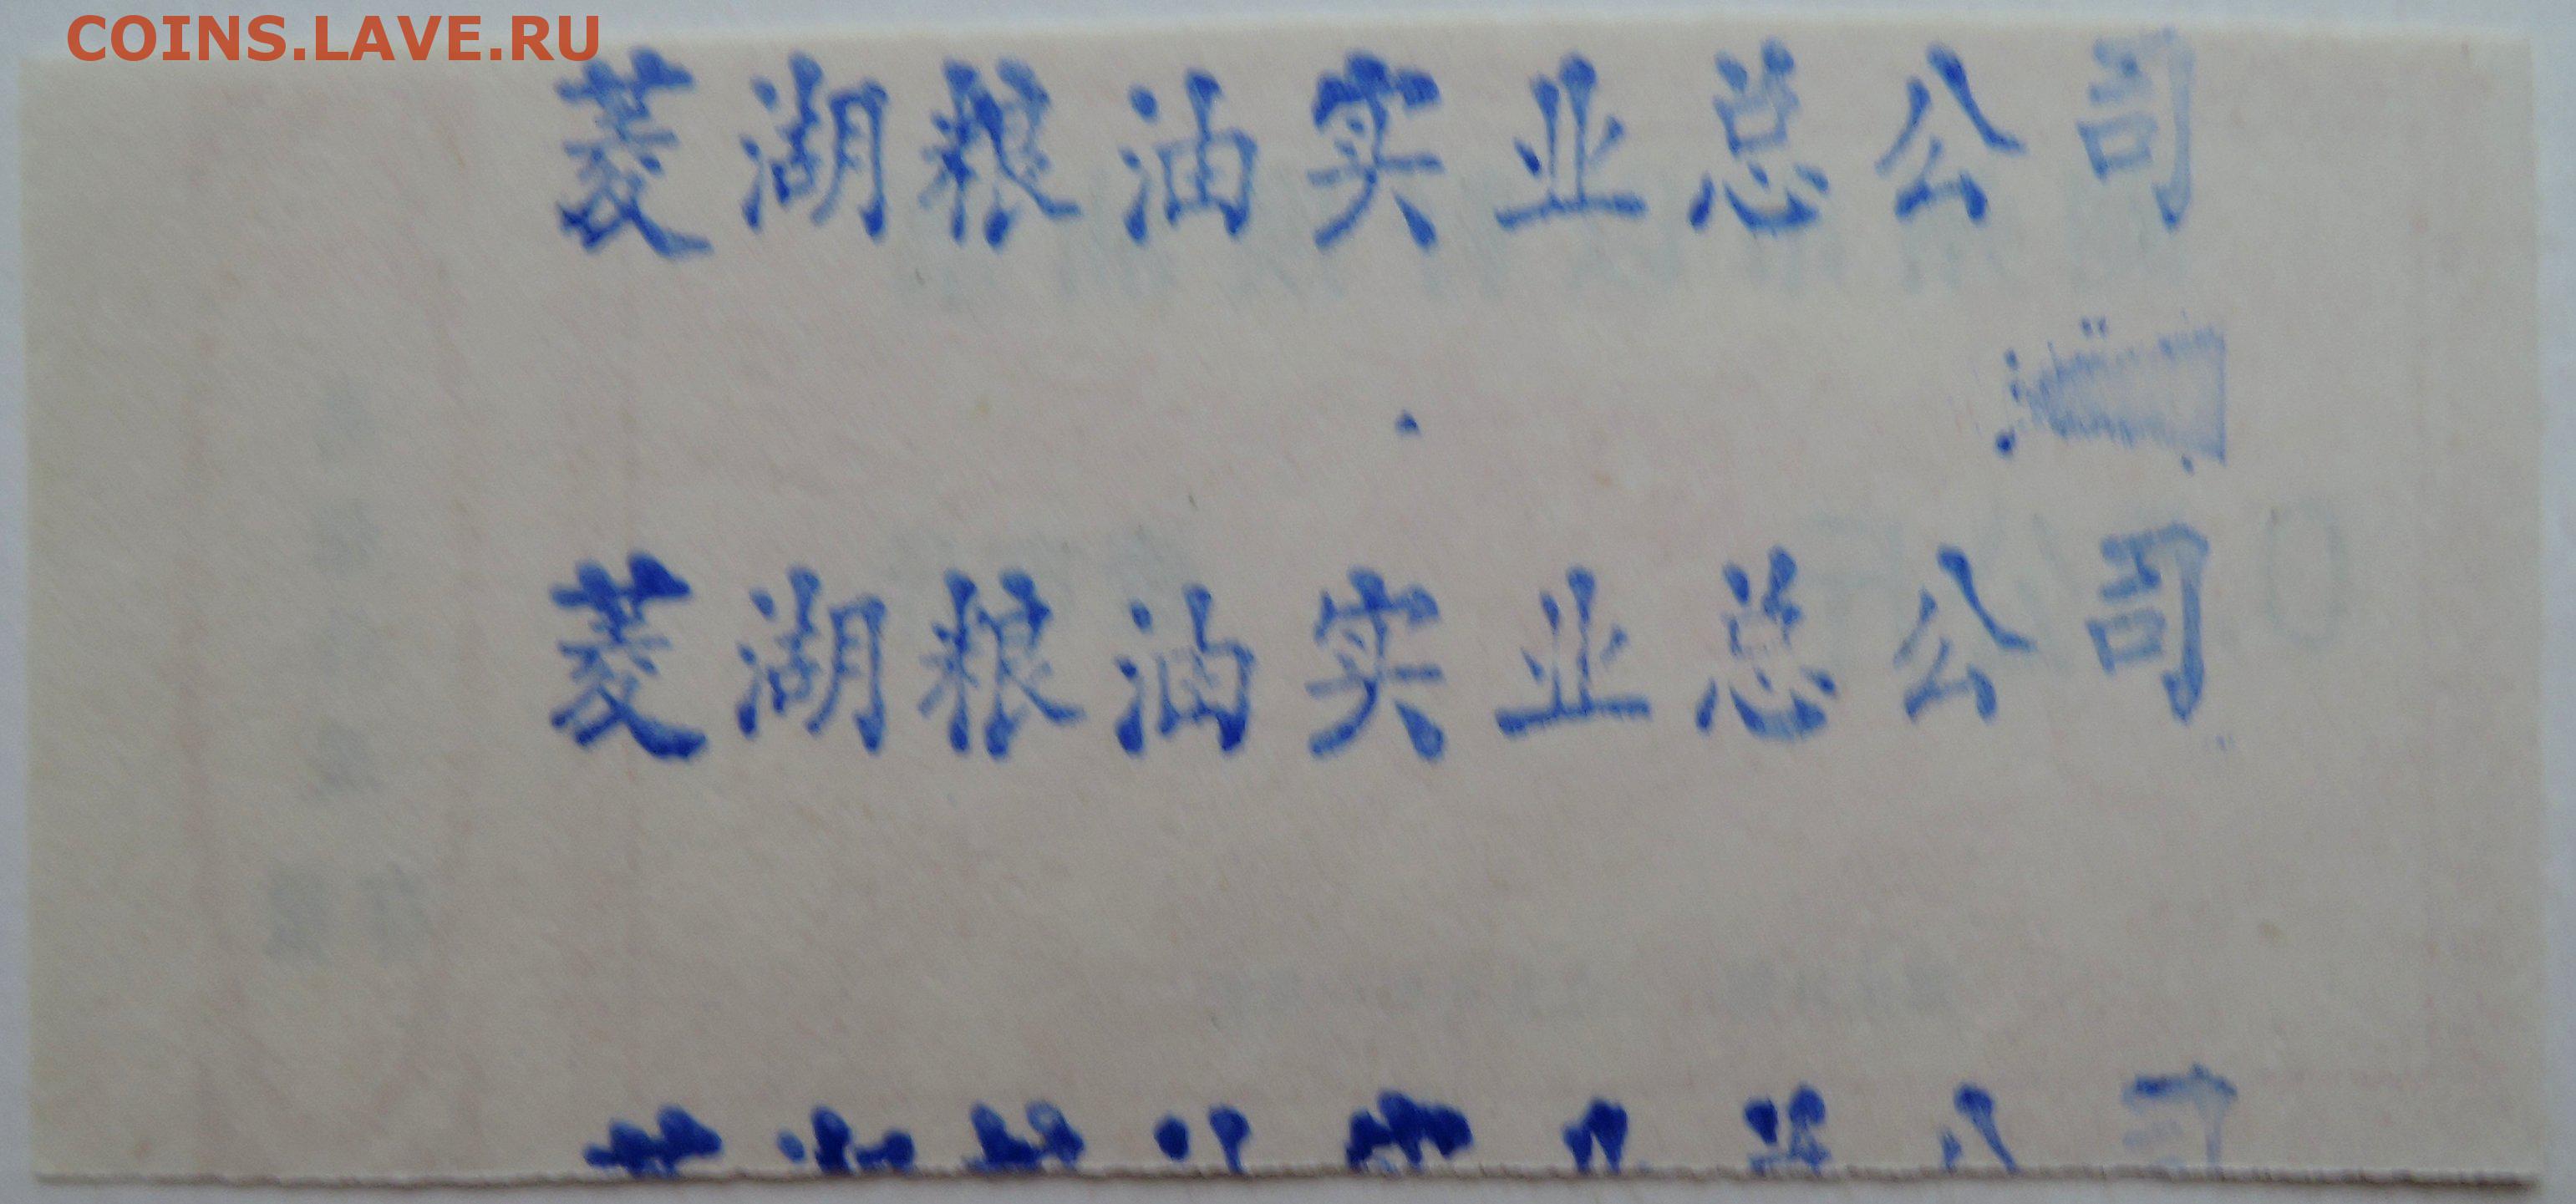 COINS.LAVE.RU
菱湖粮油实业总公司
菱湖粮油实业总公司